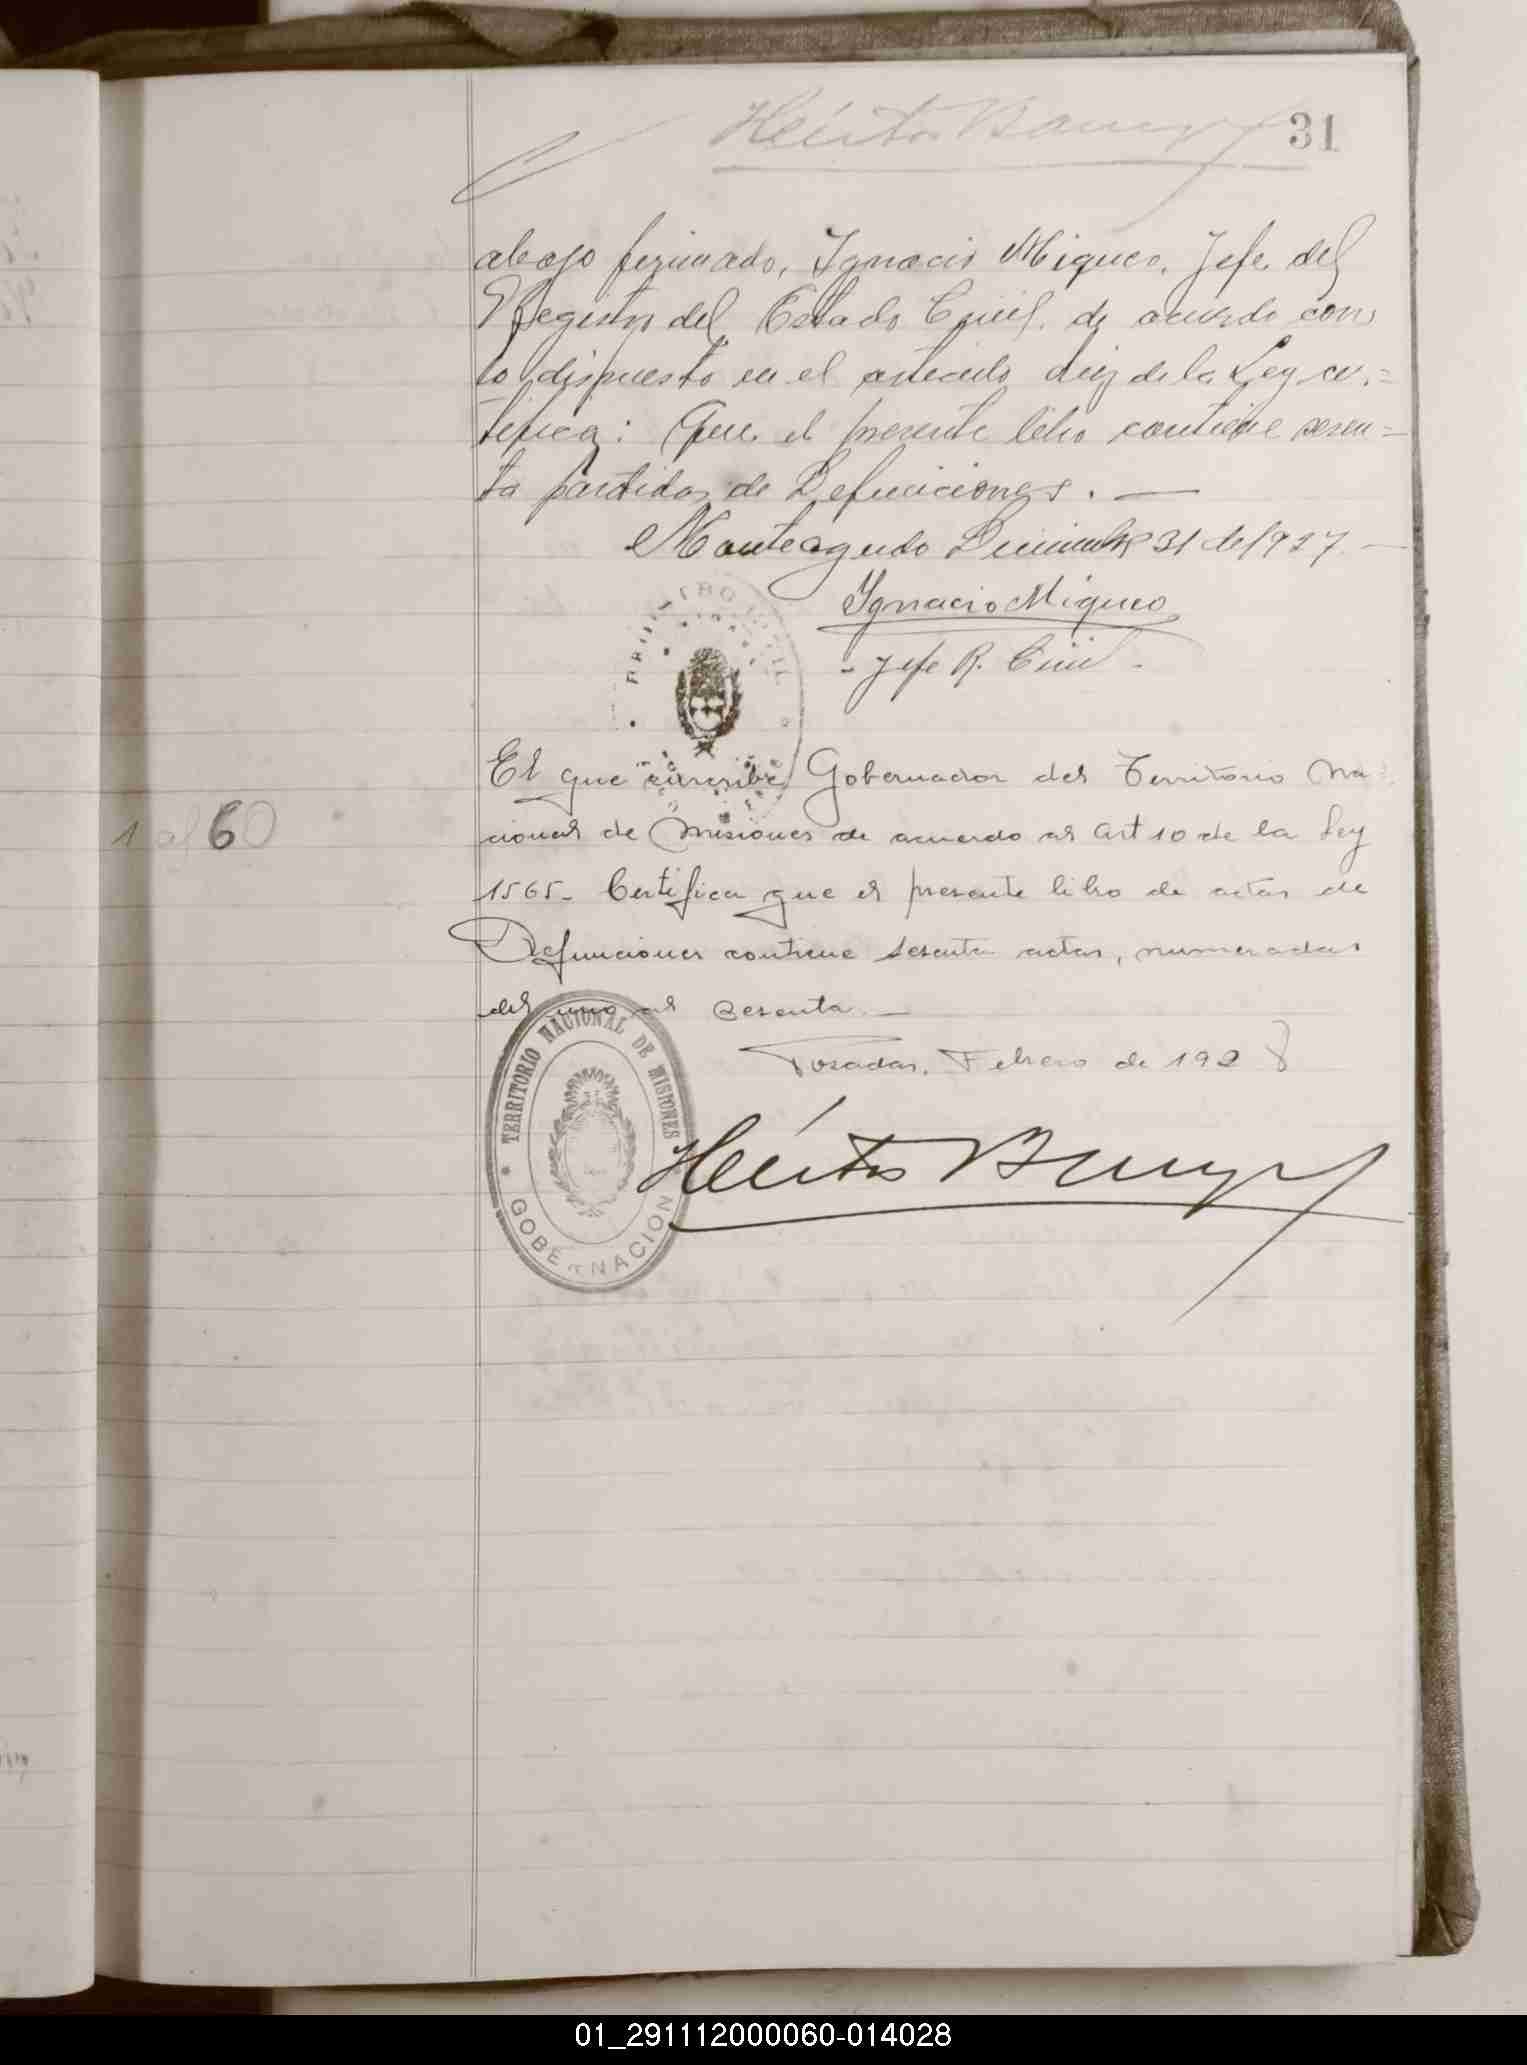 31
abajo firmado, Ignacio Migueo, Jefe del
Registro del Estado Civil, de acuerdo con
lo dispuesto en el artículo diez de la Ley cer=
tifica: Que el presente libro contiene sesen=
ta partidas de Defunciones. —
Monteagudo Diciembre 31 de 1927. —
Ignacio Migueo
- Jefe R. Civil -
El que suscribe Gobernador del Territorio Na
cional de Misiones de acuerdo al art 10 de la Ley
1 al 60
1565- Certifica que el presente libro de actas de
Defunciones contiene sesenta actas, numeradas
del uno al sesenta. —
Posadas, Febrero de 1928
TERRITORIO NACIONAL DE MISIONES
GOBERNACION
01_291112000060-014028